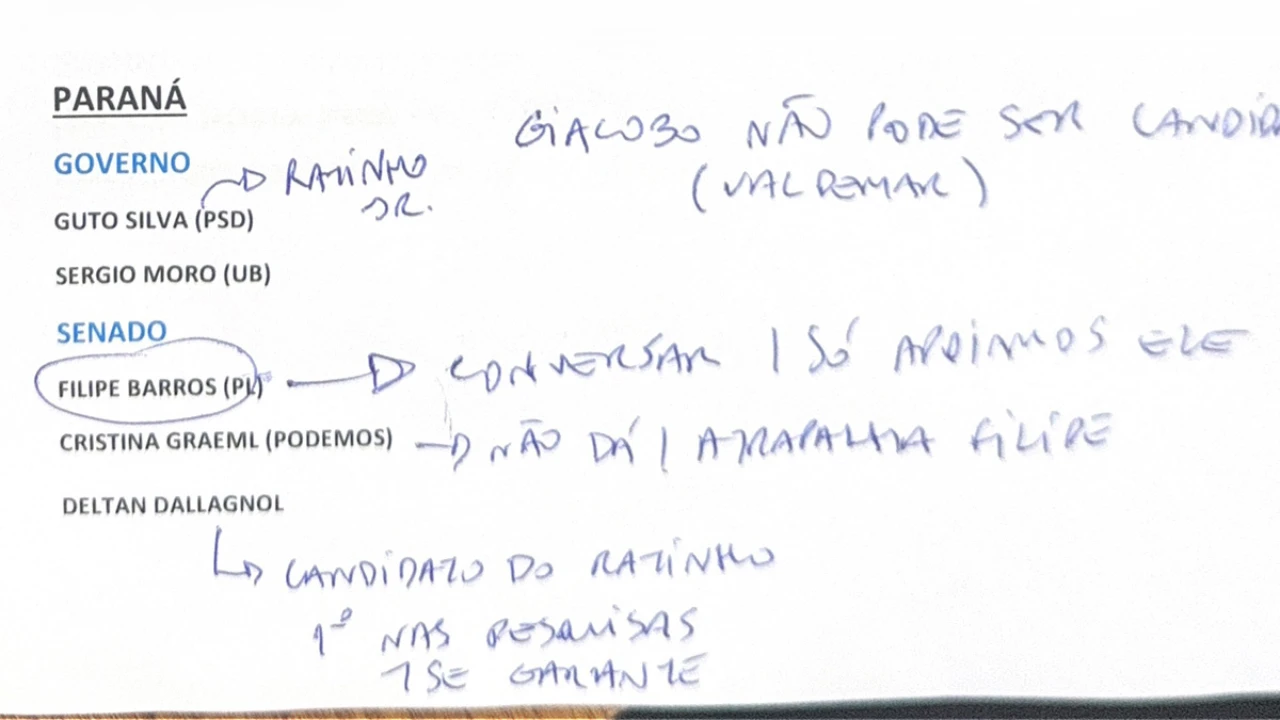 PARANÁ
GIACOBO NÃO PODE SER CANDID
(VALDEMAR)
GOVERNO
RATINHO
JR.
GUTO SILVA (PSD)
SERGIO MORO (UB)
SENADO
FILIPE BARROS (PL)
CONVERSAR | SÓ APOIAMOS ELE
CRISTINA GRAEML (PODEMOS)
NÃO DÁ | ATRAPALHA FILIPE
DELTAN DALLAGNOL
CANDIDATO DO RATINHO
1º NAS PESQUISAS
SE GARANTE